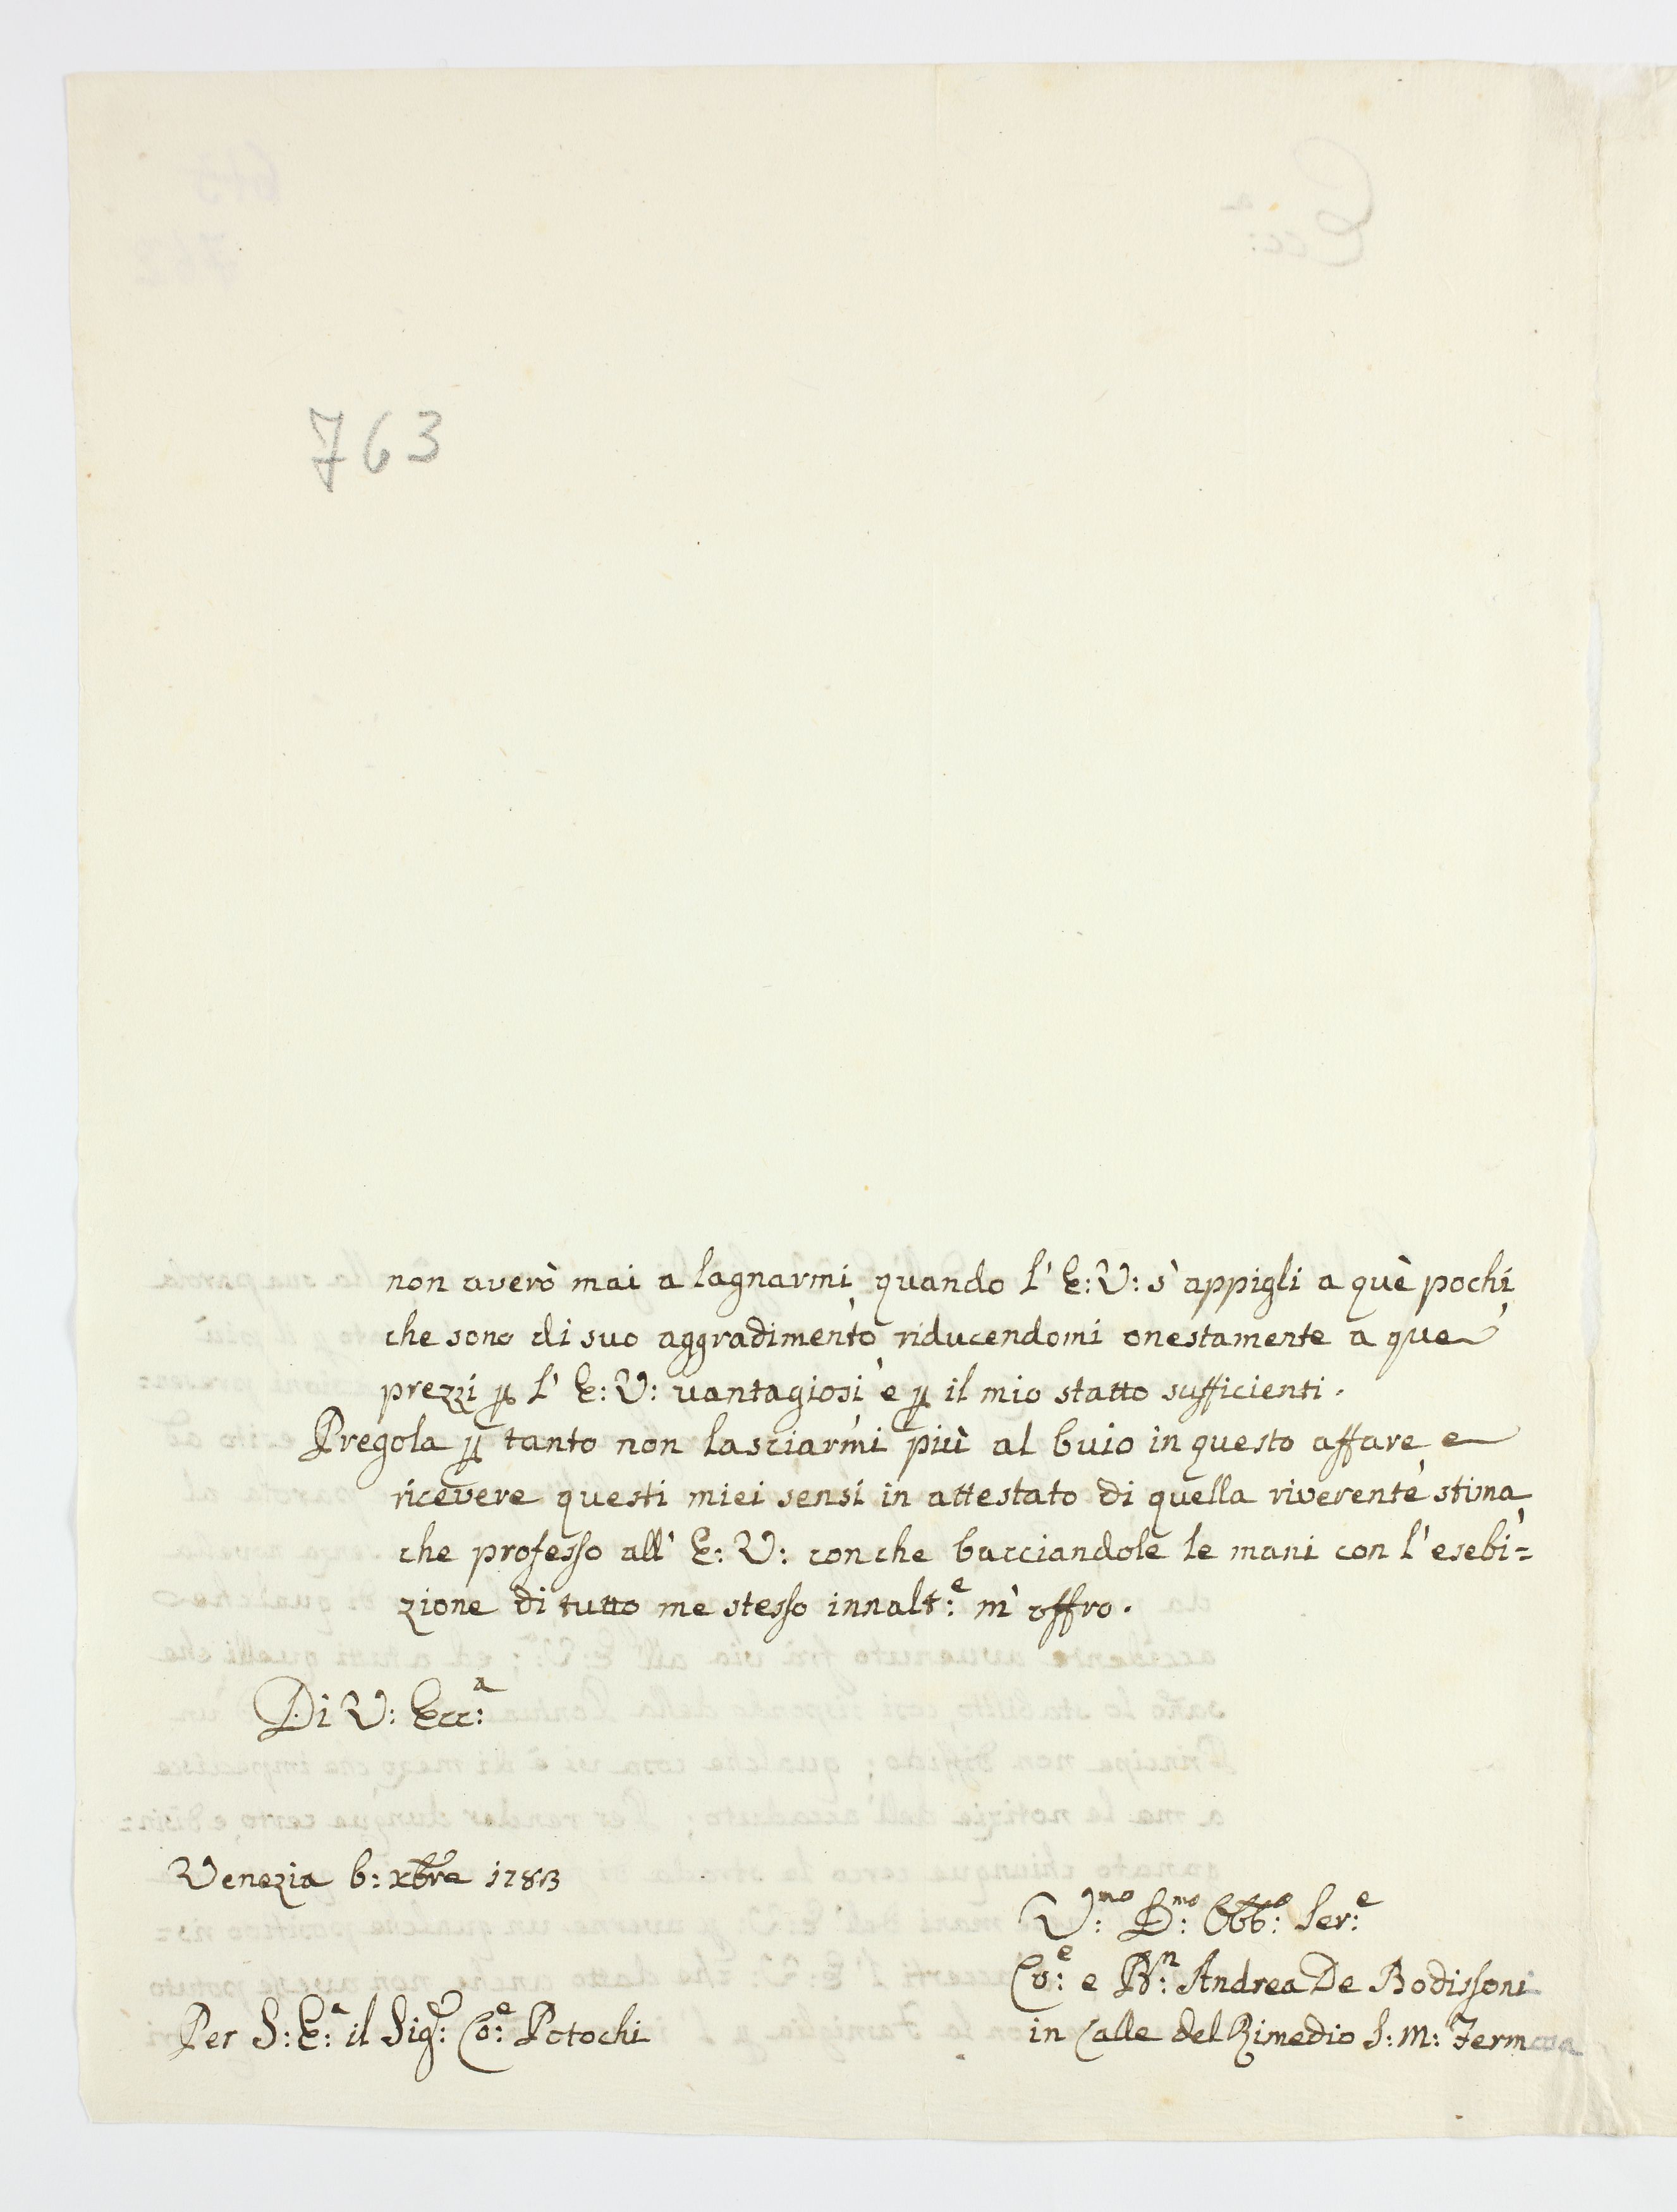 763
non averò mai a lagnarmi, quando l' E: V: s'appigli a què pochi,
che sono di suo aggradimento riducendomi onestamente a que'
prezzi ꝑ l' E: V: vantagiosi, e ꝑ il mio statto sufficienti.
Pregola ꝑ tanto non lasciarmi più al buio in questo affare e
ricevere questi miei sensi in attestato di quella riverente stima,
che professo all' E: V: con che bacciandole le mani con l'esebi=
zione di tutto me stesso innalt:e m'offro.
Di V: Ecc:a
Venezia 6: xbre 1783
V:mo D:mo Obb:o Ser:e
Co:e e Bn: Andrea De Bodissoni
in Calle del Rimedio S: M: Fermosa
Per S: E:a il Sigr: Co:e Potochi